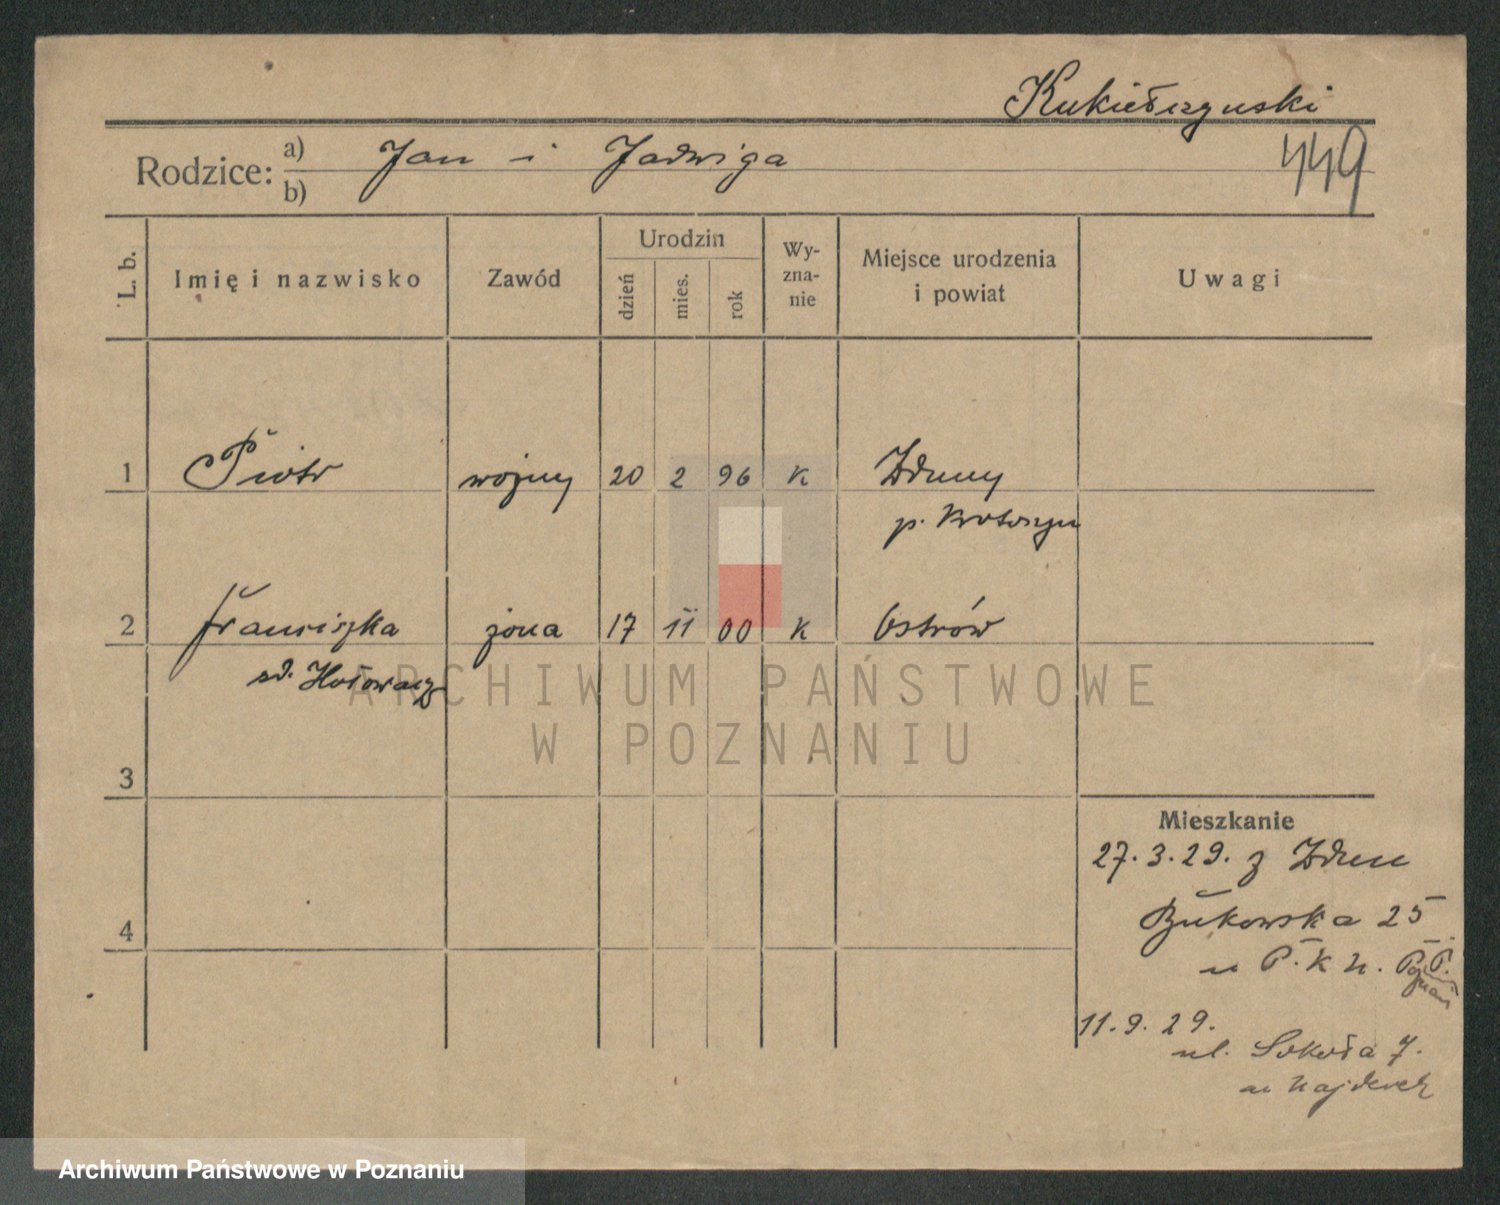 Kukiełczyński
Rodzice: a) Jan i Jadwiga
b)
449
L. b. Imię i nazwisko Zawód Urodzin dzień mies. rok Wy-zna-nie Miejsce urodzenia i powiat Uwagi
1 Piotr woźny 20 2 96 K Zduny
p. Krotoszyn
2 Franciszka żona 17 11 00 K Ostrów
3
Mieszkanie
27.3.29. z Zdun
4
Bukowska 25
u P.K.U. Poznań P.
11.9.29.
ul. Sokoła 7.
ARCHIWUM PAŃSTWOWE
W POZNANIU
Archiwum Państwowe w Poznaniu